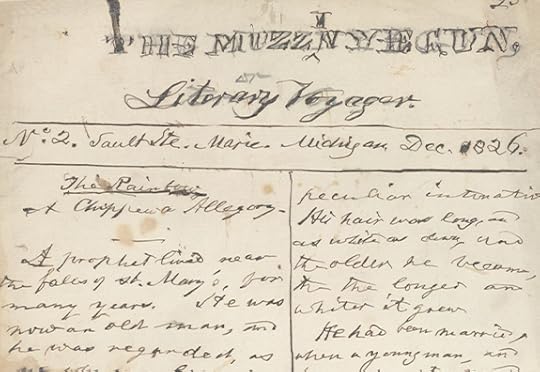 THE MUZZINYEGUN,
or
Literary Voyager.
No. 2. Sault Ste. Marie. Michigan Dec. 1826.
The Rainbow
A Chippewa Allegory.
A prophet lived near
the falls of St. Mary's, for
many years. He was
now an old man, and
he was regarded, as
peculiar
His hair was long, and
as white as down, and
the older he became,
the the longer and
whiter it grew
He had been married,
when a young man, and